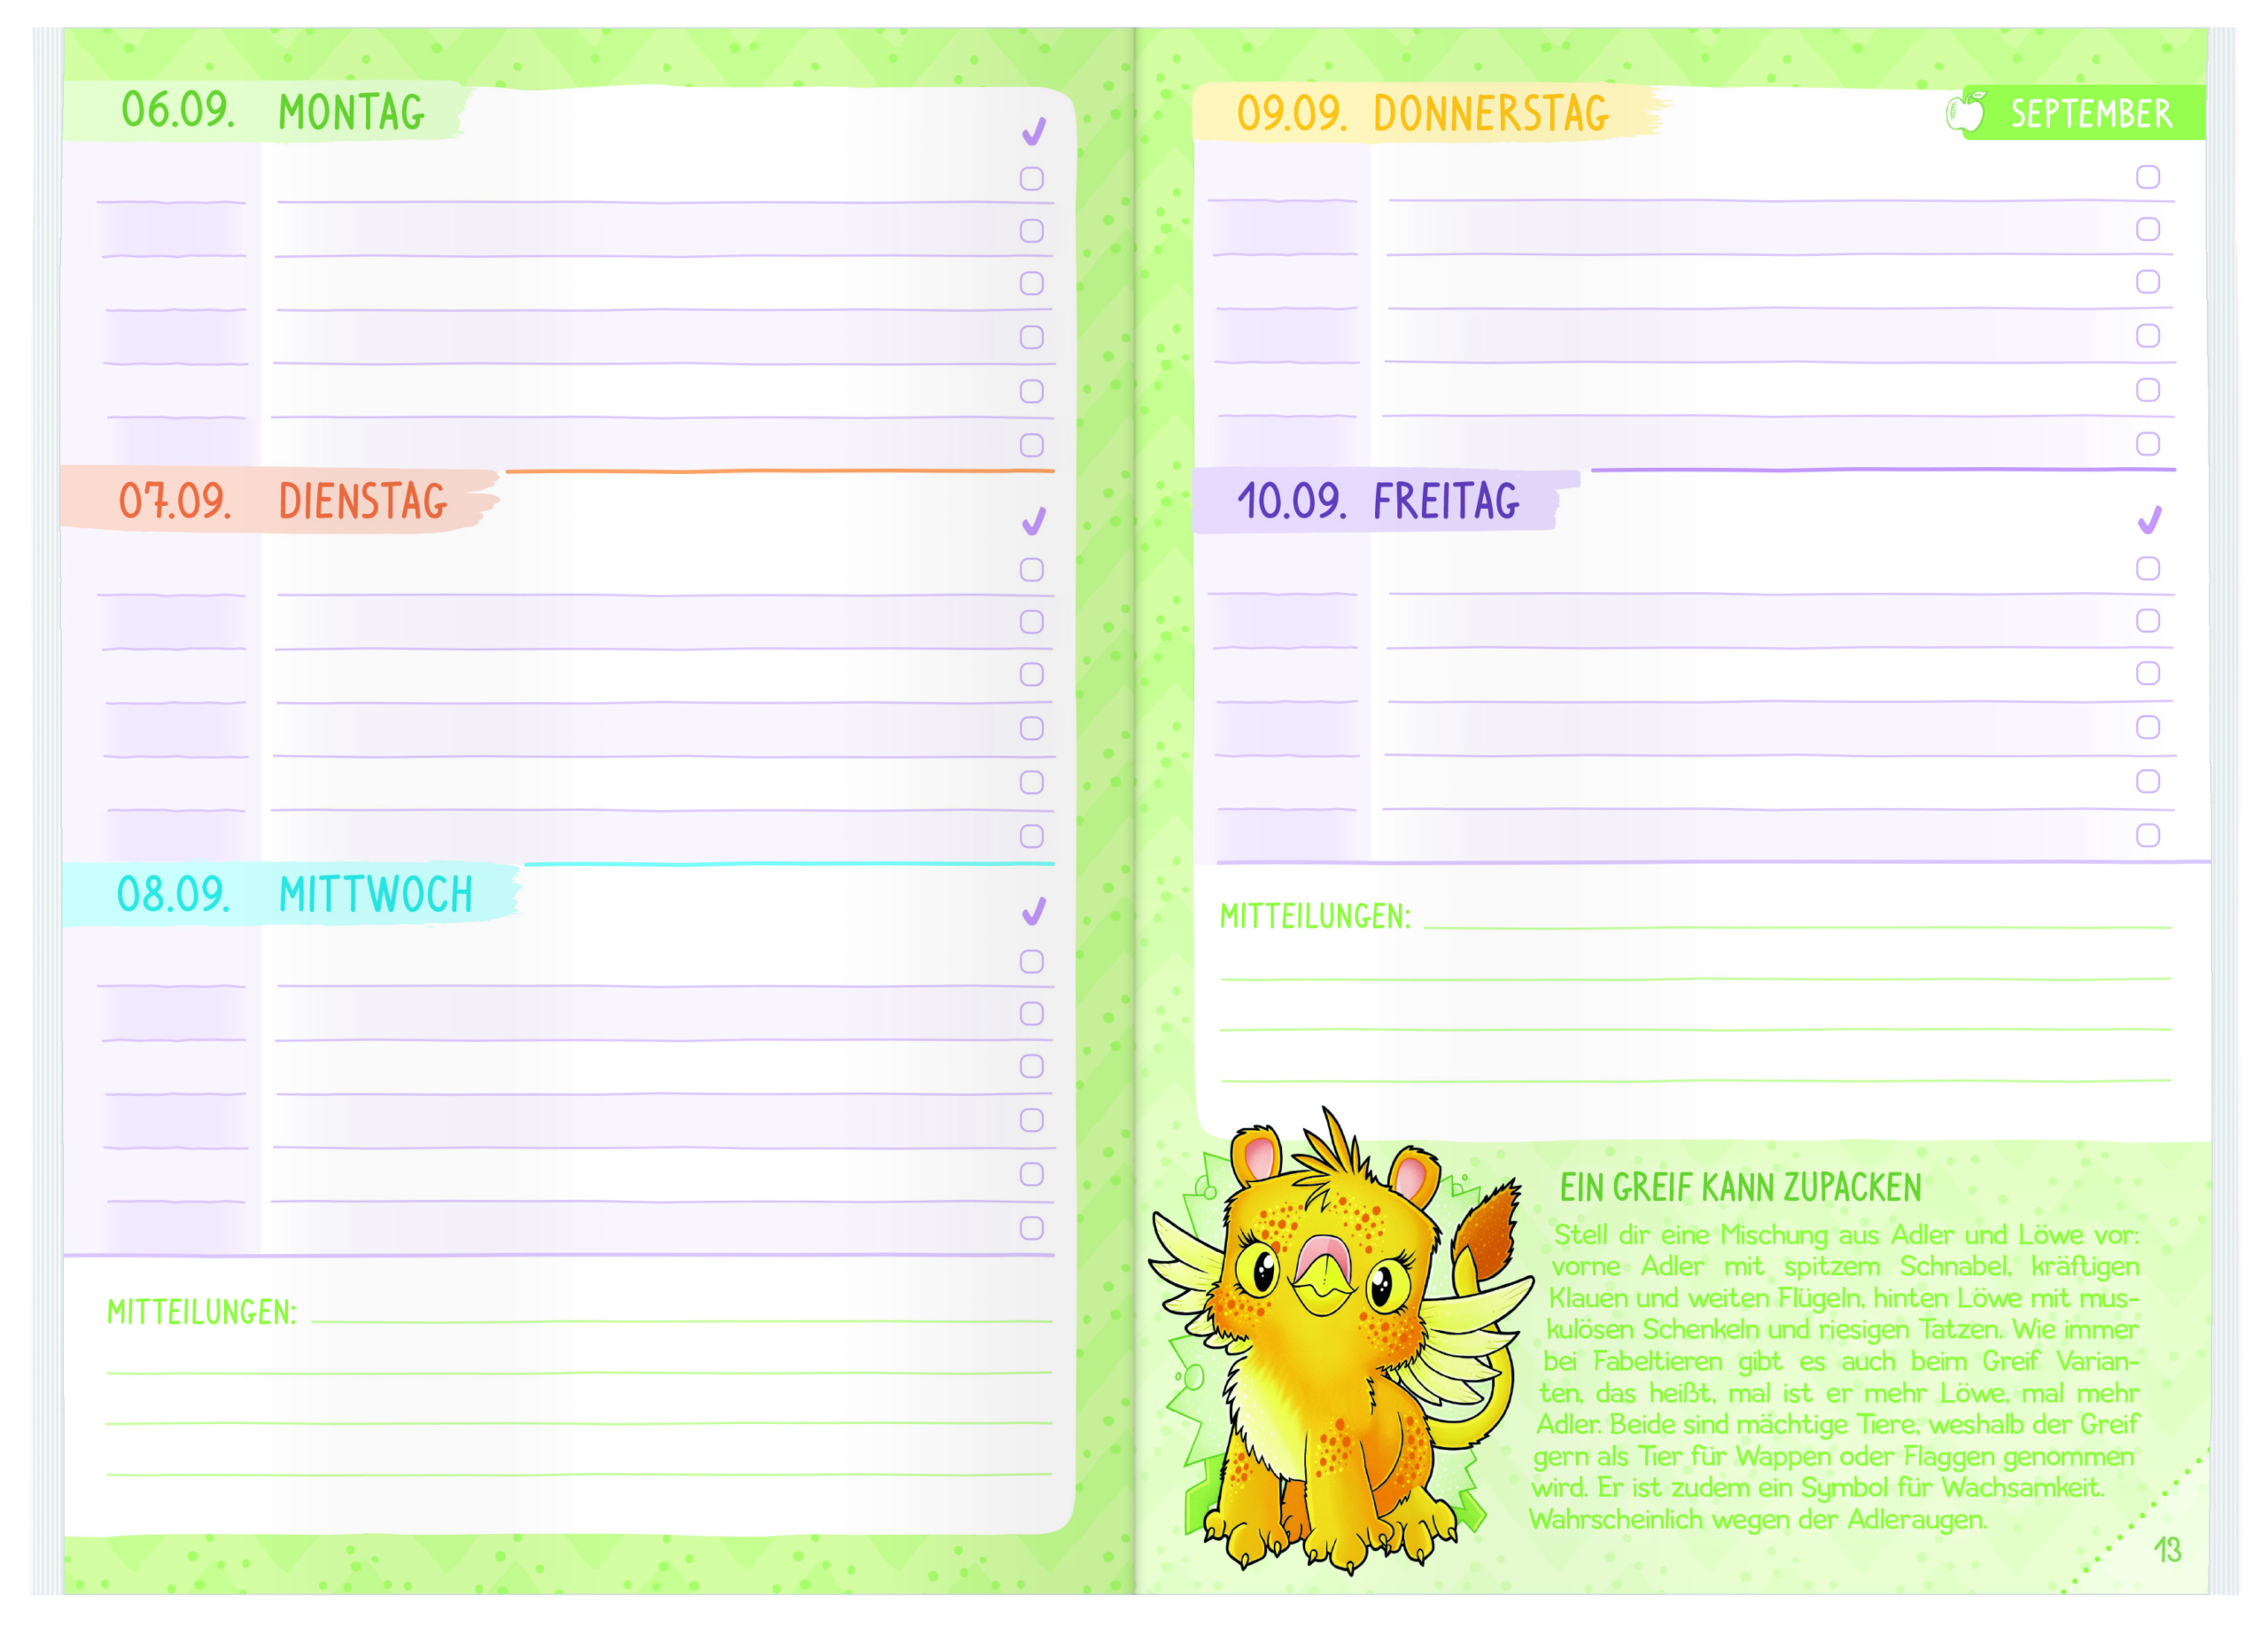 06.09. MONTAG
07.09. DIENSTAG
08.09. MITTWOCH
MITTEILUNGEN:
09.09. DONNERSTAG
SEPTEMBER
10.09. FREITAG
MITTEILUNGEN:
EIN GREIF KANN ZUPACKEN
Stell dir eine Mischung aus Adler und Löwe vor:
vorne Adler mit spitzem Schnabel, kräftigen
Klauen und weiten Flügeln, hinten Löwe mit mus-
kulösen Schenkeln und riesigen Tatzen. Wie immer
bei Fabeltieren gibt es auch beim Greif Varian-
ten, das heißt, mal ist er mehr Löwe, mal mehr
Adler. Beide sind mächtige Tiere, weshalb der Greif
gern als Tier für Wappen oder Flaggen genommen
wird. Er ist zudem ein Symbol für Wachsamkeit.
Wahrscheinlich wegen der Adleraugen.
13